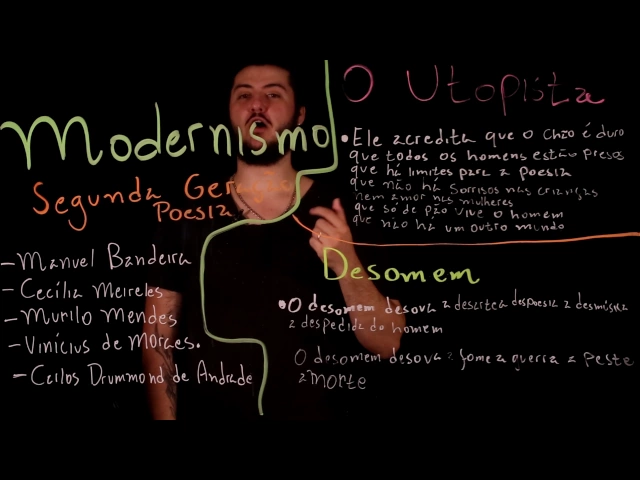 Modernismo
Segunda Geração
Poesia
- Manuel Bandeira
- Cecília Meireles
- Murilo Mendes
- Vinícius de Moraes.
- Carlos Drummond de Andrade
O Utopista
• Ele acredita que o chão é duro
que todos os homens estão presos
que há limites para a poesia
que não há sorrisos nas crianças
nem amor nas mulheres
que só de pão vive o homem
que não há um outro mundo
Desomem
• O desomem desova a descrea despoesia a desmúsica
a despedida do homem
O desomem desova a fome a guerra a peste
a morte